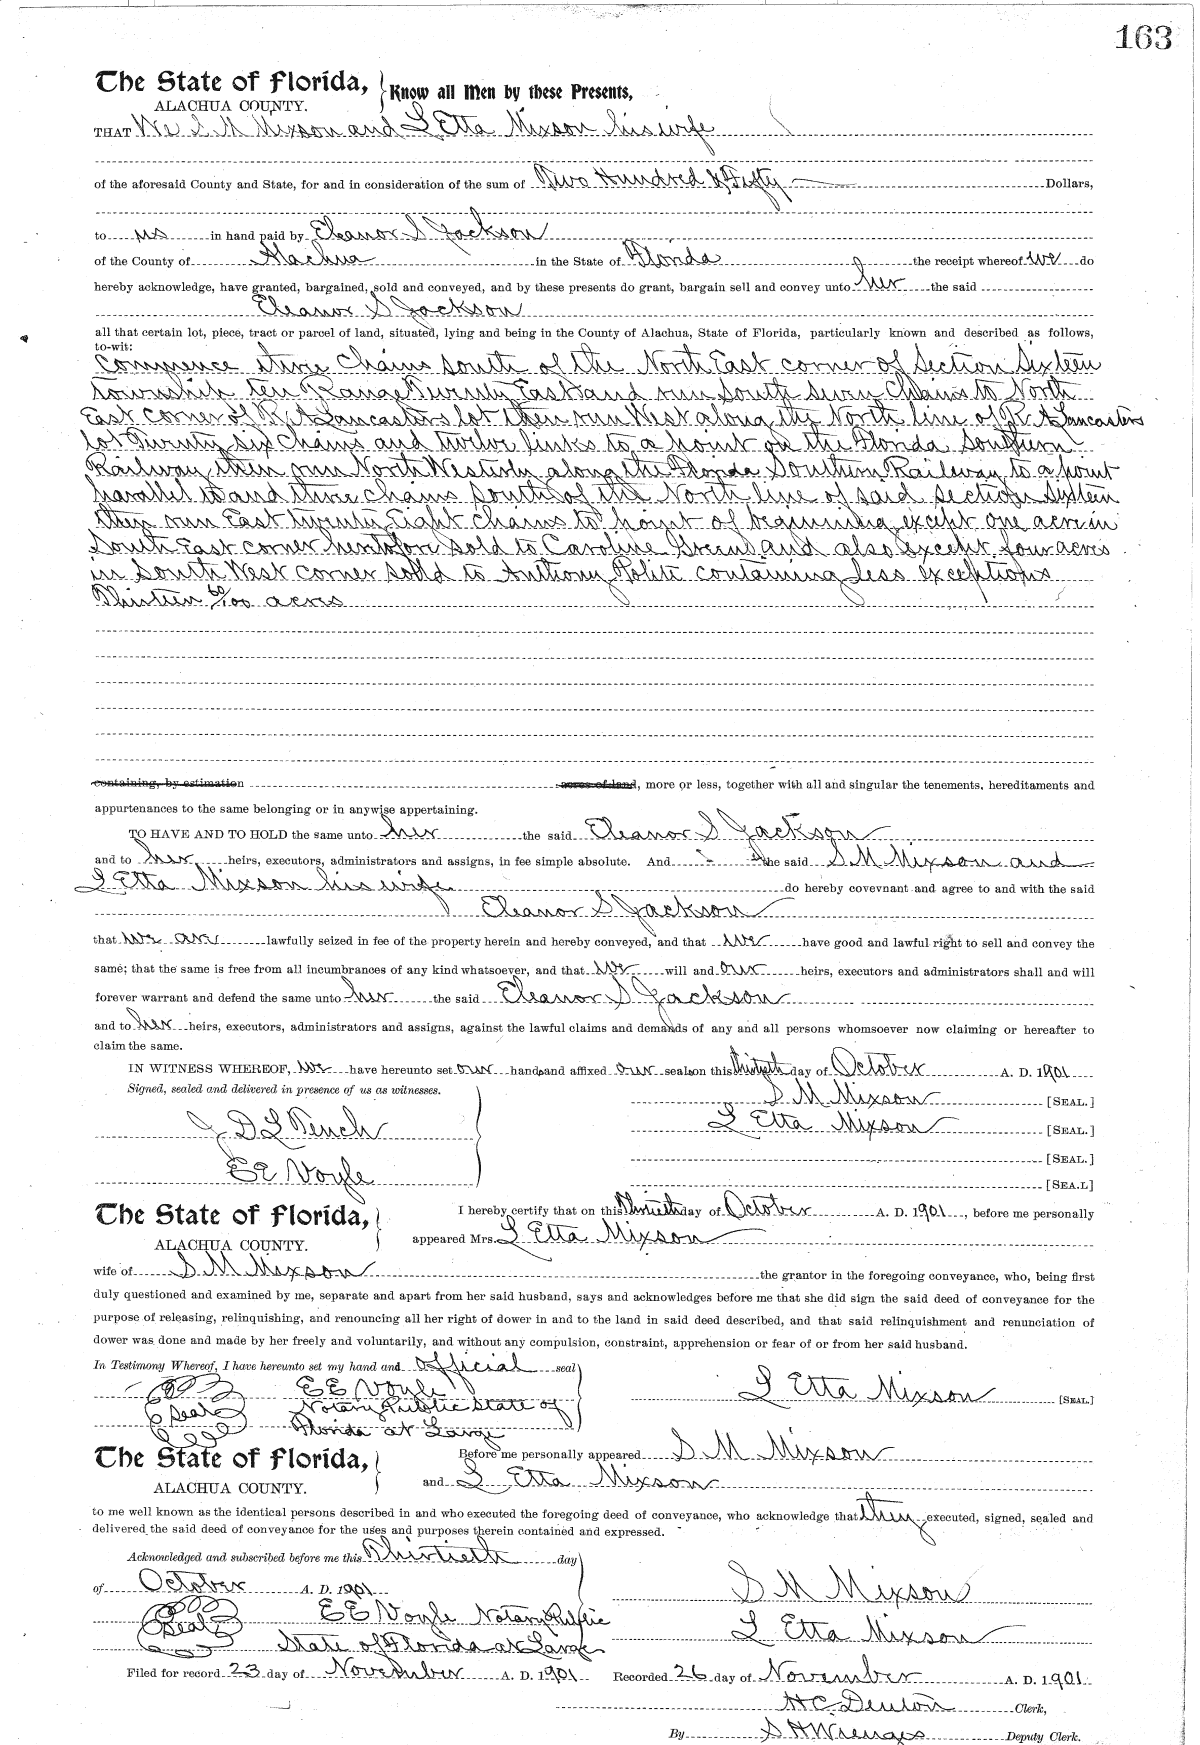 163
The State of Florida, Know all Men by these Presents,
ALACHUA COUNTY.
THAT We S M Mixson and L Etta Mixson his wife
of the aforesaid County and State, for and in consideration of the sum of Two Hundred & Fifty Dollars,
to us in hand paid by Eleanor S Jackson
of the County of Alachua in the State of Florida the receipt whereof we do
hereby acknowledge, have granted, bargained, sold and conveyed, and by these presents do grant, bargain sell and convey unto her the said
Eleanor S Jackson
all that certain lot, piece, tract or parcel of land, situated, lying and being in the County of Alachua, State of Florida, particularly known and described as follows,
to-wit:
Commence three Chains South of the North East corner of Section Sixteen
township ten Range Twenty East and run South seven Chains to North
East corner of R A Lancasters lot then run West along the North line of R A Lancasters
lot Twenty six Chains and twelve links to a point on the Florida Southern
Railway then run North Westerly along the Florida Southern Railway to a point
parallel to and three chains south of the North line of said section Sixteen
then run East twenty Eight chains to point of beginning except one acre in
South East corner heretofore sold to Caroline Greens and also except four acres
in South West corner sold to Anthony Polite containing less exceptions
Thirteen 60/100 acres
containing, by estimation acres of land, more or less, together with all and singular the tenements, hereditaments and
appurtenances to the same belonging or in anywise appertaining.
TO HAVE AND TO HOLD the same unto her the said Eleanor S Jackson
and to her heirs, executors, administrators and assigns, in fee simple absolute. And the said S M Mixson and
L Etta Mixson his wife do hereby covevnant and agree to and with the said
Eleanor S Jackson
that we are lawfully seized in fee of the property herein and hereby conveyed, and that we have good and lawful right to sell and convey the
same; that the same is free from all incumbrances of any kind whatsoever, and that we will and our heirs, executors and administrators shall and will
forever warrant and defend the same unto her the said Eleanor S Jackson
and to her heirs, executors, administrators and assigns, against the lawful claims and demands of any and all persons whomsoever now claiming or hereafter to
claim the same.
IN WITNESS WHEREOF, we have hereunto set our hands and affixed our seals on this thirtieth day of October A. D. 1901
Signed, sealed and delivered in presence of us as witnesses.
S M Mixson [SEAL.]
J D L Tench L Etta Mixson [SEAL.]
[SEAL.]
EE Voyle [SEA.L]
The State of Florida, I hereby certify that on this Thirtieth day of October A. D. 1901, before me personally
ALACHUA COUNTY. appeared Mrs. L Etta Mixson
wife of S M Mixson the grantor in the foregoing conveyance, who, being first
duly questioned and examined by me, separate and apart from her said husband, says and acknowledges before me that she did sign the said deed of conveyance for the
purpose of releasing, relinquishing, and renouncing all her right of dower in and to the land in said deed described, and that said relinquishment and renunciation of
dower was done and made by her freely and voluntarily, and without any compulsion, constraint, apprehension or fear of or from her said husband.
In Testimony Whereof, I have hereunto set my hand and official seal
EE Voyle L Etta Mixson [SEAL.]
Seal Notary Public State of
Florida at Large
The State of Florida, Before me personally appeared S M Mixson
ALACHUA COUNTY. and L Etta Mixson
to me well known as the identical persons described in and who executed the foregoing deed of conveyance, who acknowledge that they executed, signed, sealed and
delivered the said deed of conveyance for the uses and purposes therein contained and expressed.
Acknowledged and subscribed before me this Thirtieth day
of October A. D. 1901 S M Mixson
Seal EE Voyle Notary Public L Etta Mixson
State of Florida at Large
Filed for record 23 day of November A. D. 1901 Recorded 26 day of November A. D. 1901
H C Denton Clerk,
By S H Wienges Deputy Clerk.